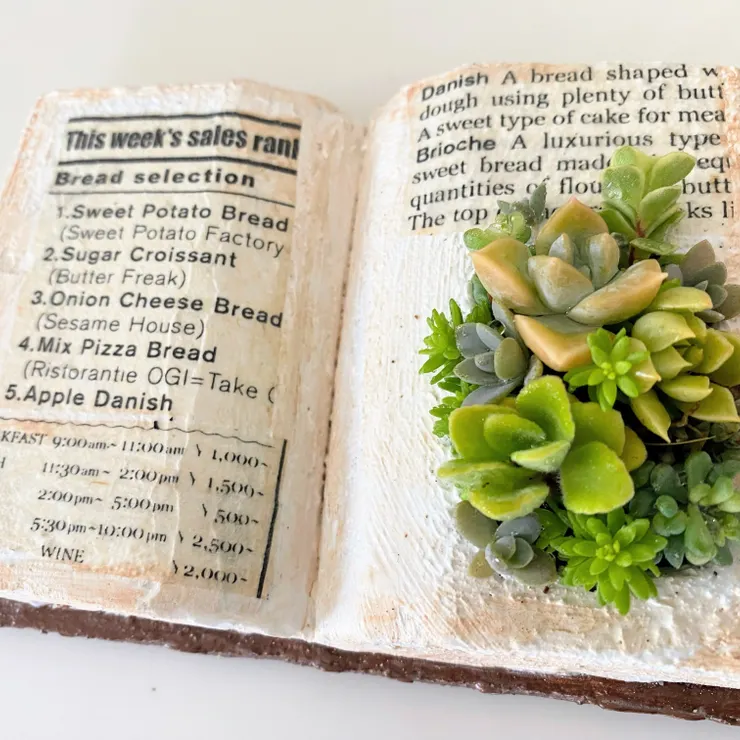 This week's sales
Bread selection
1.Sweet Potato Bread
(Sweet Potato Factory
2.Sugar Croissant
(Butter Freak)
3.Onion Cheese Bread
(Sesame House)
4.Mix Pizza Bread
(Ristorantie OGI=Take
5.Apple Danish
9:00am~11:00am 1,000~
11:30am~ 2:00pm 1,500~
2:00pm~ 5:00pm 500~
5:30pm~10:00pm 2,500~
WINE 2,000~
Danish A bread shaped
dough using plenty of
A sweet type of cake for
Brioche A luxurious type
sweet bread
quantities of
The top